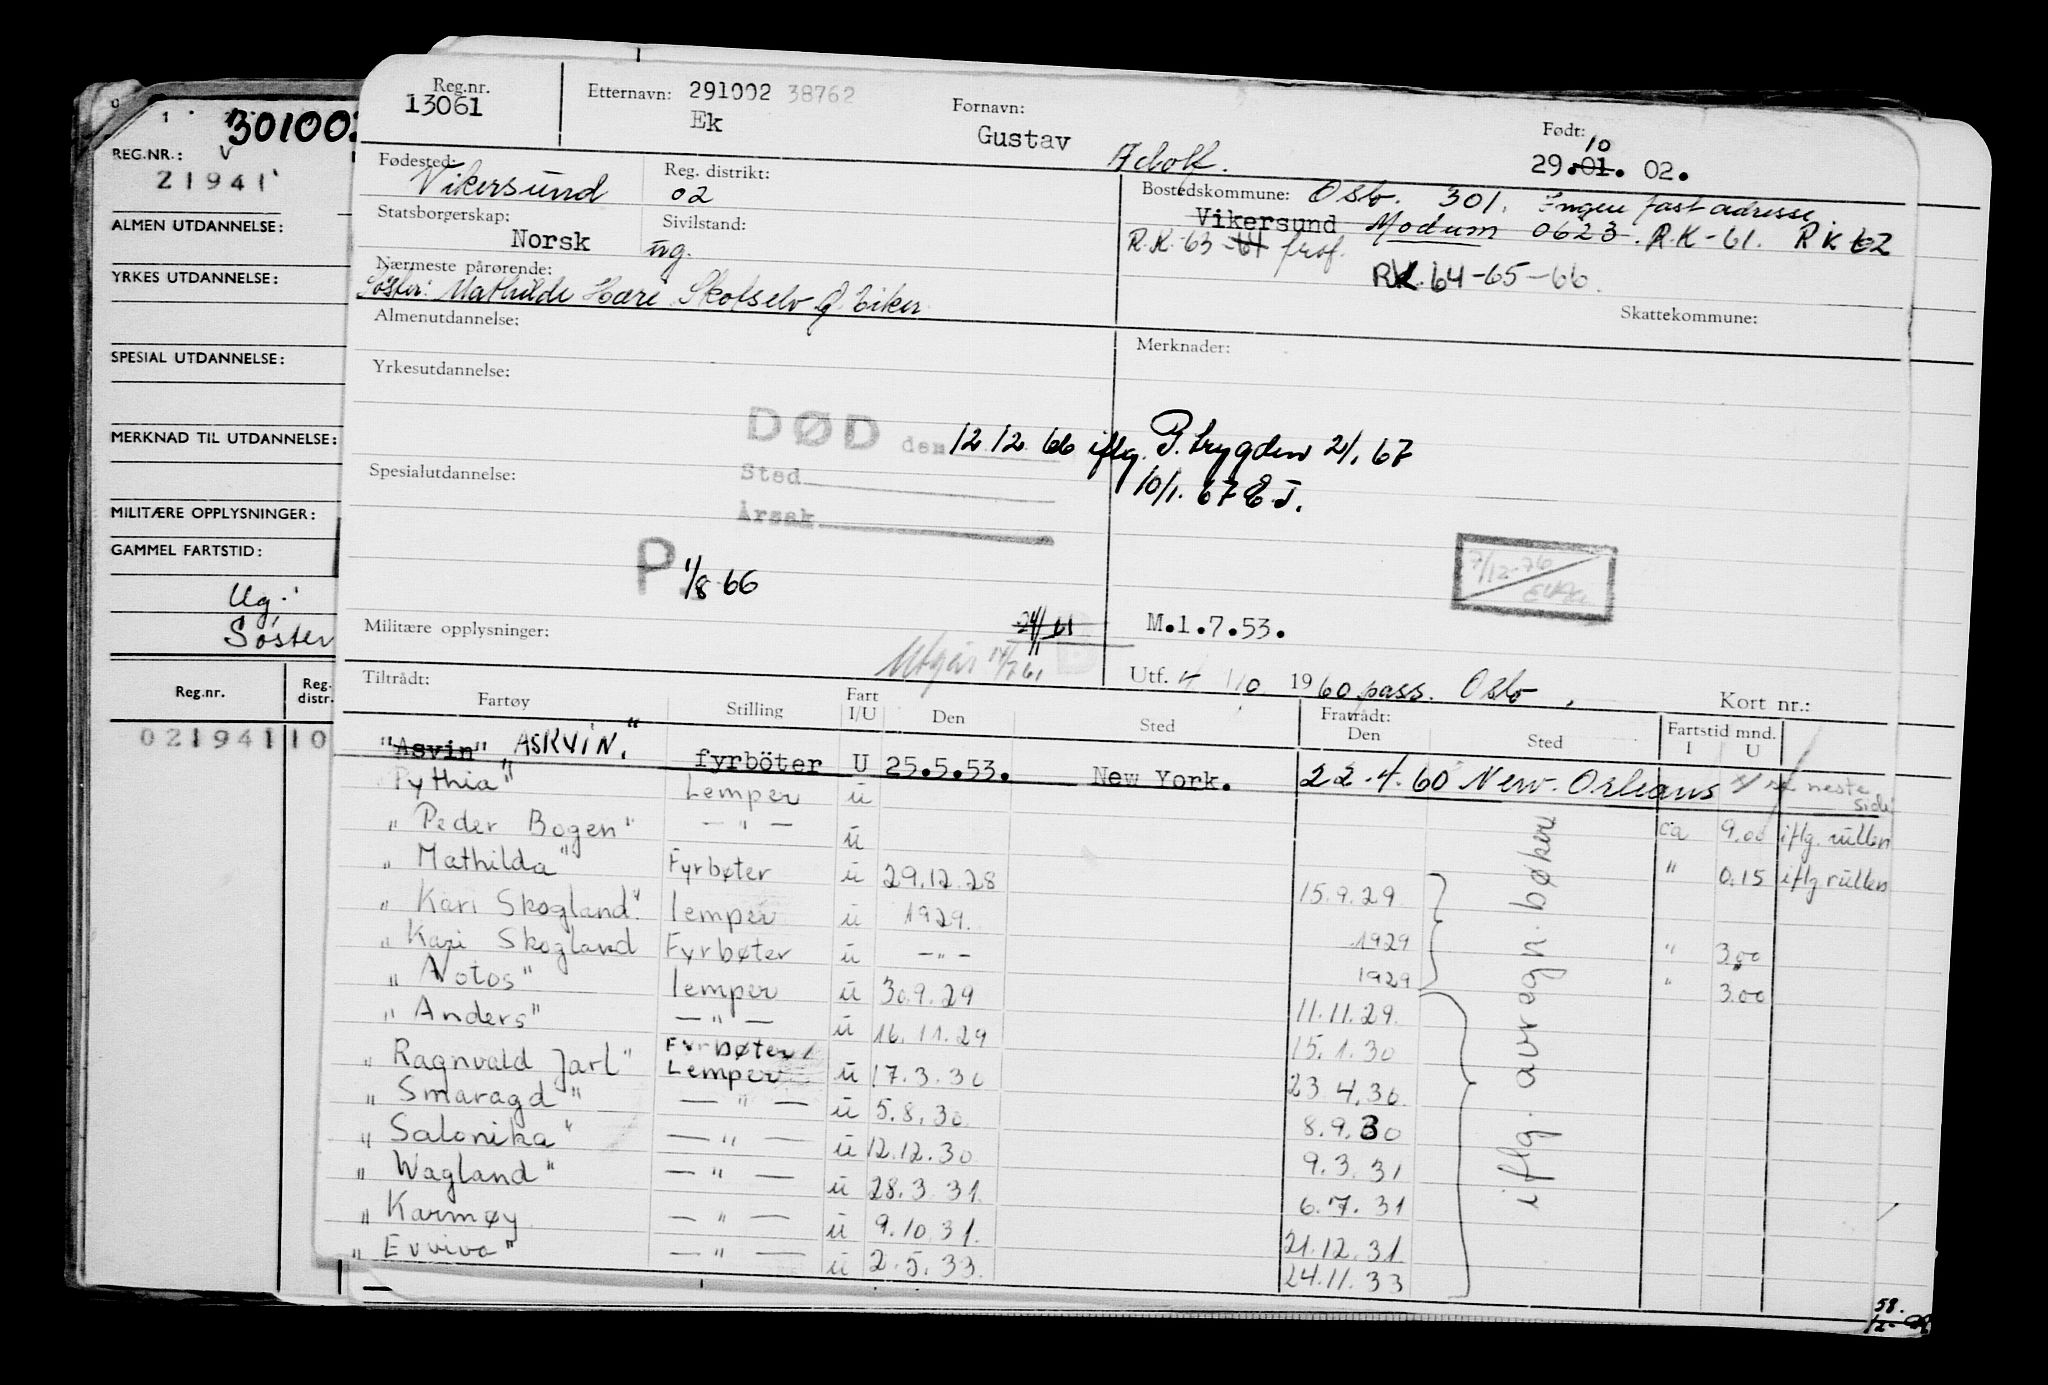 30100
REG.NR.: V
21941
ALMEN UTDANNELSE:
YRKES UTDANNELSE:
SPESIAL UTDANNELSE:
MERKNAD TIL UTDANNELSE:
MILITÆRE OPPLYSNINGER:
GAMMEL FARTSTID:
Ug.
Søster
Reg.nr. Reg. distr.
021941 10
Reg.nr. 13061
Etternavn: 291002 38762
Ek
Fornavn:
Gustav Adolf.
Født:
10
29.01. 02.
Fødested: Vikersund
Reg. distrikt: 02
Bostedskommune: Oslo. 301. Ingen fast adresse
Statsborgerskap: Norsk
Sivilstand: ug.
Vikersund Modum 0623. R.K-61. RK 62
R.K-63-64
RK. 64-65-66.
Nærmeste pårørende:
Søster: Mathilde Hære Skotselv Ø. Eiker
Skattekommune:
Almenutdannelse:
Merknader:
Yrkesutdannelse:
DØD den 12 12 66 iflg. P. trygden 2/1 67
10/1. 67 E.J.
Spesialutdannelse:
Sted
Årsak
P. 1/8 66
7/12-76
Militære opplysninger:
24/11 61
M.1.7.53.
Utgår 14/7 61 B
Utf. 4 10 1960 pass. Oslo
Kort nr.:
Tiltrådt: Fratrådt:
Fartøy Stilling Fart I/U Den Sted Den Sted Fartstid mnd. I U
"Asvin" "ASKVIN" fyrböter U 25.5.53. New York. 22.4.60 New. Orleans neste side
Pythia" Lemper u ca 9.00 iflg. rullen
" Peder Bogen" — " — u " 0.15 iflg rullen
" Mathilda" Fyrbøter u 29.12.28 15.9.29
" Kari Skogland" lemper u 1929. 1929 " 3.00
" Kari Skogland Fyrbøter u — " — 1929 " 3.00
" Notos" lemper u 30.9.29 11.11.29.
" Anders" — " — u 16.11.29 15.1.30
" Ragnvald Jarl" Fyrbøter Lemper u 17.3.30 23 4.30
" Smaragd" — " — u 5.8.30 8.9.30
" Salonika" — " — u 12.12.30 9.3.31
" Wagland" — " — u 28.3 31. 6.7.31
" Karmøy — " — u 9.10 31. 21.12.31
" Evviva" — " — u 2.5.33. 24.11.33
iflg. avregn. bøker
58.